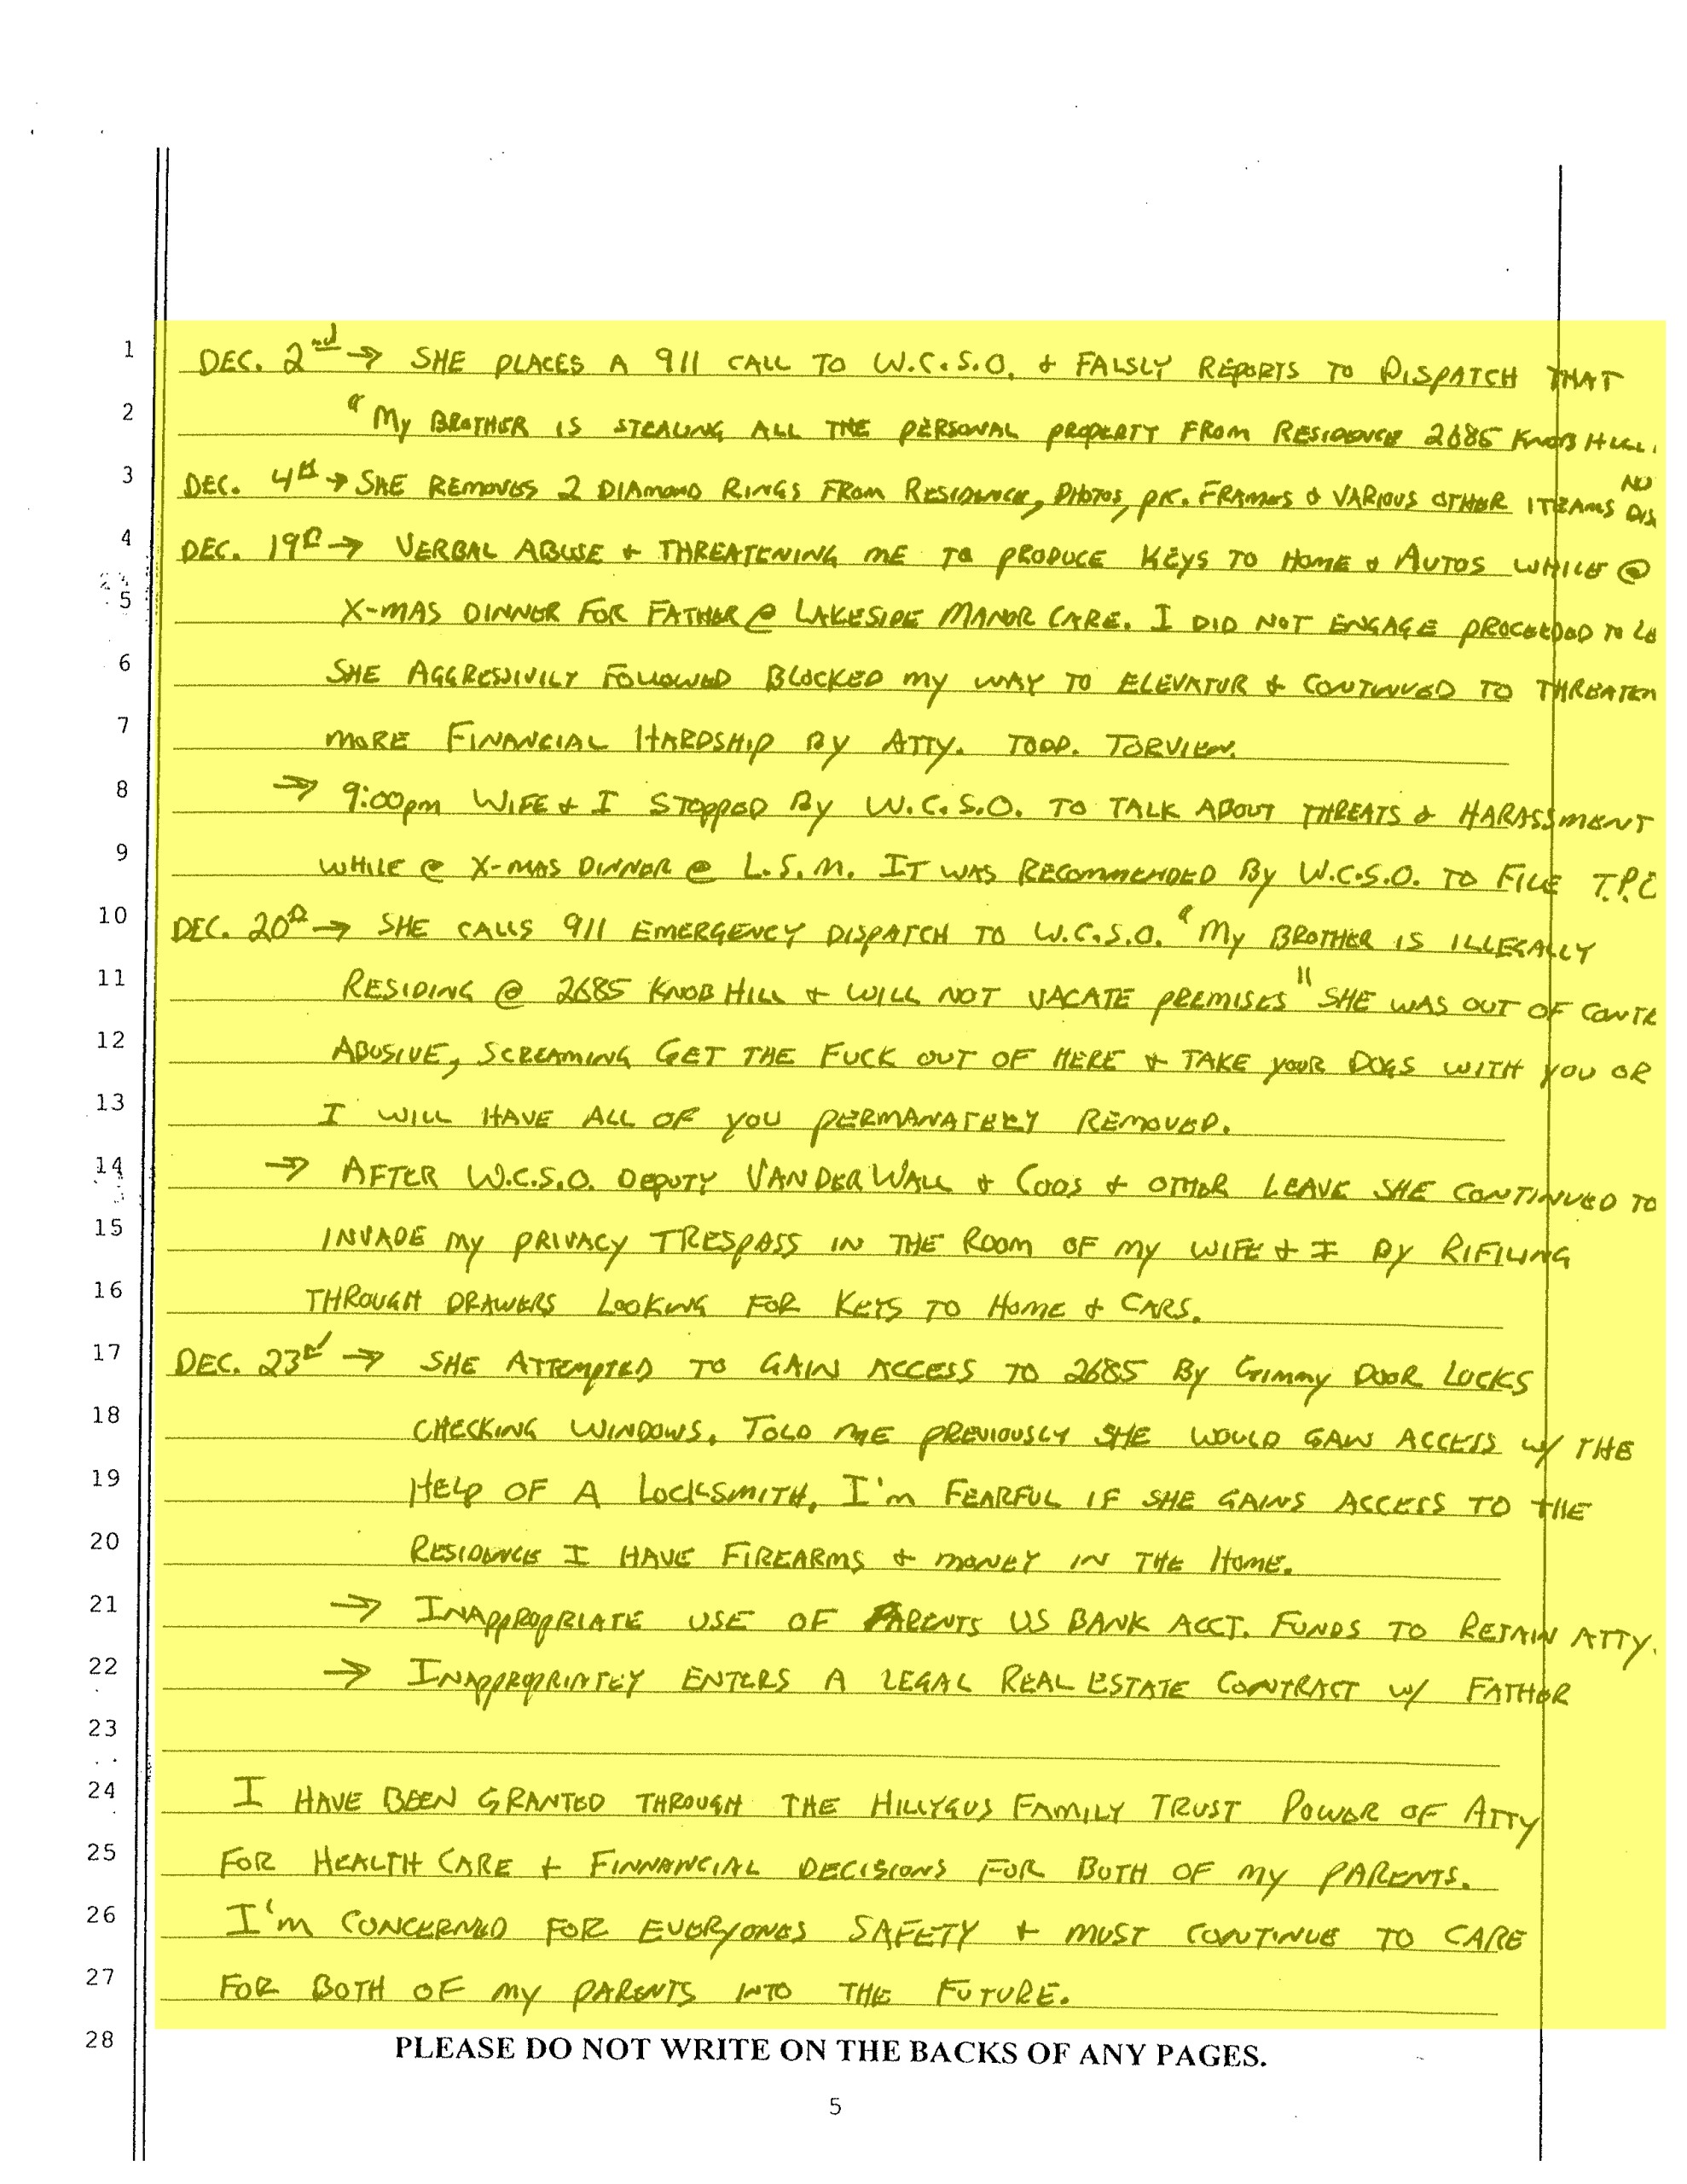 1 DEC. 2nd → SHE PLACES A 911 CALL TO W.C.S.O. & FALSLY REPORTS TO DISPATCH THAT
2 "MY BROTHER IS STEALING ALL THE PERSONAL PROPERTY FROM RESIDENCE 2685 KNOB HILL.
3 DEC. 4th → SHE REMOVES 2 DIAMOND RINGS FROM RESIDENCE, PHOTOS, PIC. FRAMES & VARIOUS OTHER ITEAMS NO DIS
4 DEC. 19th → VERBAL ABUSE & THREATENING ME TO PRODUCE KEYS TO HOME & AUTOS WHILE @
5 X-MAS DINNER FOR FATHER @ LAKESIDE MANOR CARE. I DID NOT ENGAGE PROCEEDED TO LE
6 SHE AGGRESSIVILY FOLLOWED BLOCKED MY WAY TO ELEVATOR & CONTINUED TO THREATEN
7 MORE FINANCIAL HARDSHIP BY ATTY. TODD. TORVIEN.
8 → 9:00pm WIFE & I STOPPED BY W.C.S.O. TO TALK ABOUT THREATS & HARASSMENT
9 WHILE @ X-MAS DINNER @ L.S.M. IT WAS RECOMMENDED BY W.C.S.O. TO FILE T.P.O
10 DEC. 20th → SHE CALLS 911 EMERGENCY DISPATCH TO W.C.S.O. "MY BROTHER IS ILLEGALLY
11 RESIDING @ 2685 KNOB HILL & WILL NOT VACATE PREMISES" SHE WAS OUT OF CONTR
12 ABUSIVE, SCREAMING GET THE FUCK OUT OF HERE & TAKE YOUR DOGS WITH YOU OR
13 I WILL HAVE ALL OF YOU PERMANATELY REMOVED.
14 → AFTER W.C.S.O. DEPUTY VANDERWALL & COOS & OTHER LEAVE SHE CONTINUED TO
15 INVADE MY PRIVACY TRESPASS IN THE ROOM OF MY WIFE & I BY RIFILING
16 THROUGH DRAWERS LOOKING FOR KEYS TO HOME & CARS.
17 DEC. 23rd → SHE ATTEMPTED TO GAIN ACCESS TO 2685 BY GIMMY DOOR LOCKS
18 CHECKING WINDOWS. TOLD ME PREVIOUSLY SHE WOULD GAIN ACCESS W/ THE
19 HELP OF A LOCKSMITH. I'M FEARFUL IF SHE GAINS ACCESS TO THE
20 RESIDENCE I HAVE FIREARMS & MONEY IN THE HOME.
21 → INAPPROPRIATE USE OF PARENTS US BANK ACCT. FUNDS TO RETAIN ATTY.
22 → INAPPROPRIATEY ENTERS A LEGAL REAL ESTATE CONTRACT W/ FATHER
23
24 I HAVE BEEN GRANTED THROUGH THE HILLYGUS FAMILY TRUST POWER OF ATTY
25 FOR HEALTH CARE & FINNANCIAL DECISIONS FOR BOTH OF MY PARENTS.
26 I'M CONCERNED FOR EVERYONES SAFETY & MUST CONTINUE TO CARE
27 FOR BOTH OF MY PARENTS INTO THE FUTURE.
28 PLEASE DO NOT WRITE ON THE BACKS OF ANY PAGES.
5